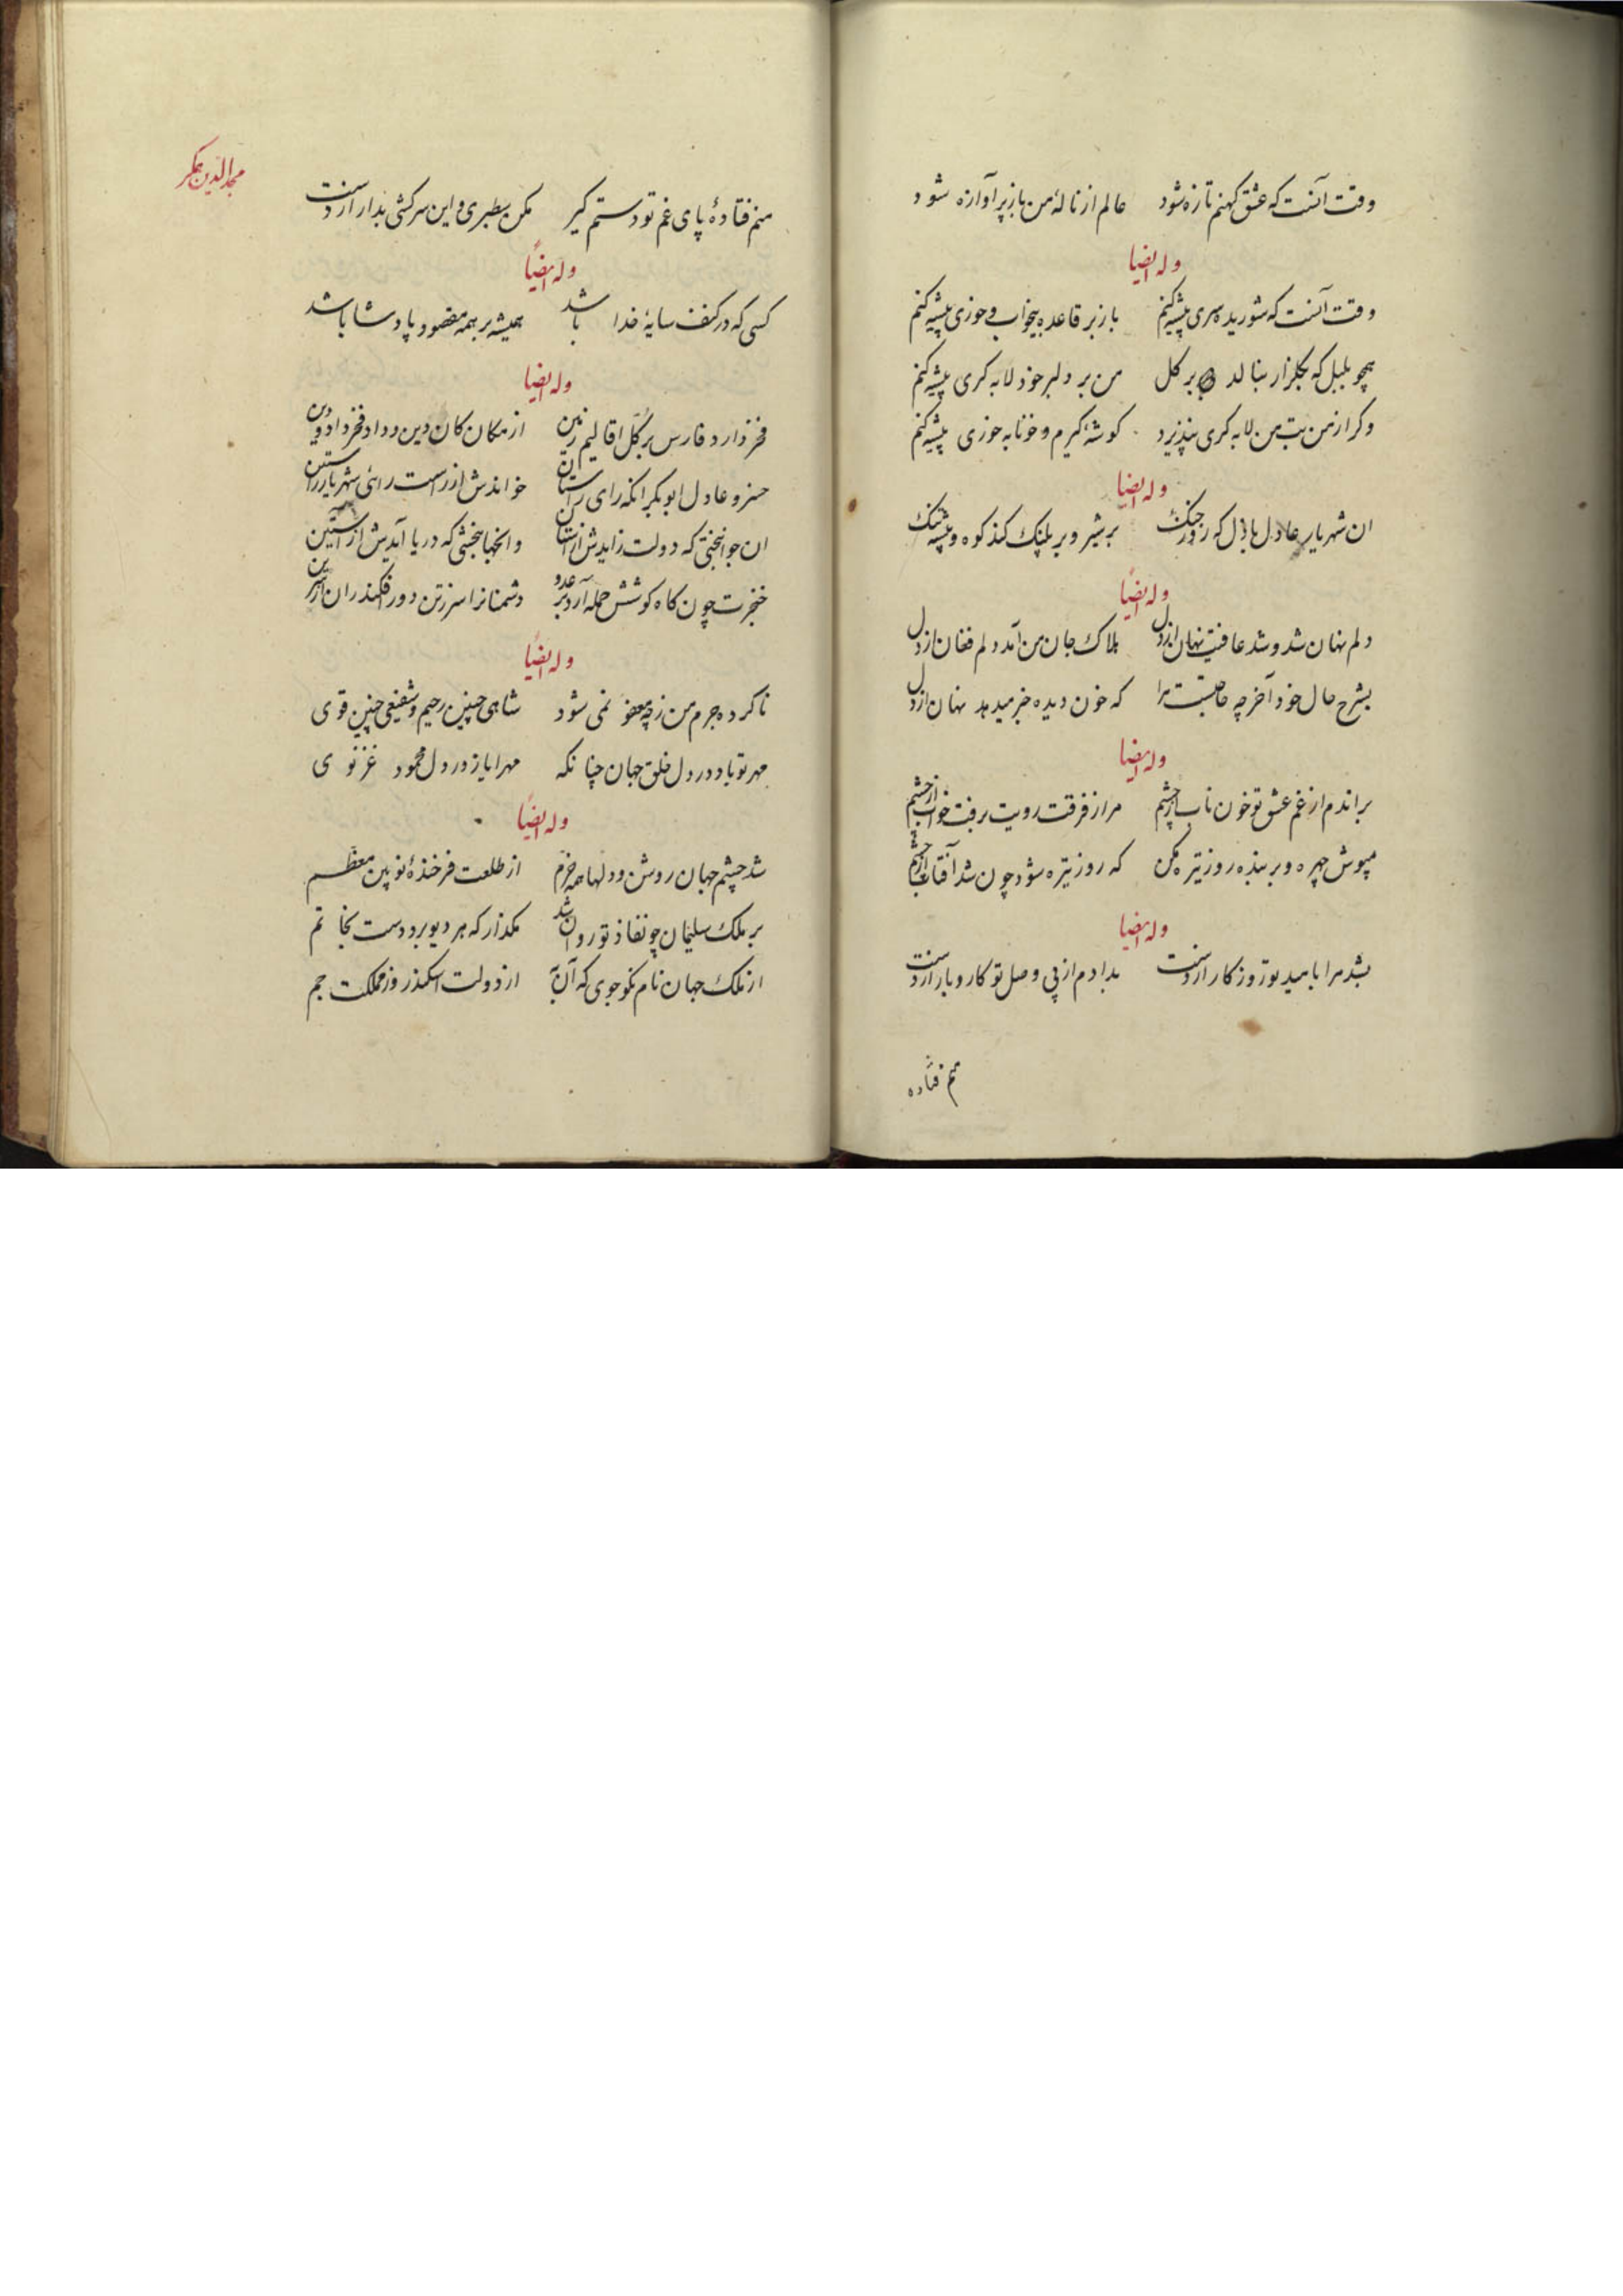 وقت آنست که عشق کهنم تازه شود عالم از نالهٔ من باز پر آوازه شود
وله ایضا
وقت آنست که شوریده سری پیشه کنم باز بر قاعده بیخواب و خوری پیشه کنم
همچو بلبل که بگلزار بنالد بر گل من بر دلبر خود لابه کری پیشه کنم
وکر از من بت من لابه کری نپذیرد کوشهٔ کیرم و خونابه خوری پیشه کنم
وله ایضا
ان شهریار عادل باذل که روز جنک بر شیر و بر پلنک کند کوه و بیشه تنک
وله ایضاً
دلم نهان شد و شد عافیت نهان از دل هلاک جان من آمد دلم فغان از دل
بشرح حال خود آخر چه حاجتست مرا که خون دیده خبر میدهد نهان از دل
وله ایضا
براندم از غم عشق تو خون ناب از چشم مرا ز فرقت رویت برفت خواب از چشم
مپوش چهره و بر بنده روز تیره مکن که روز تیره شود چون شد آفتاب از چشم
وله ایضا
بشد مرا بامید تو روزکار از دست بدادم از پی وصل تو کار و بار از دست
منم فتاده
مجدالدین همکر
منم فتادهٔ پای غم تو دستم کیر مکن سطبری و این سرکشی بدار از دست
وله ایضاً
کسی که در کنف سایهٔ خدا باشد همیشه بر همه مقصود پادشا باشد
وله ایضا
فخر دارد فارس بر کل اقالیم زمین از مکان کان دین و داد فخر داد و دین
خسرو عادل ابوبکر انکه رای راستان خواندش از راست رائی شهریار راستین
ان جوانبختی که دولت زایدش از استان وانجهانبخشی که دریا آیدش از آستین
خنجرت چون کاه کوشش حمله آرد بر عدو دشمنانرا سر ز تن دور افکند ران از سرین
وله ایضاً
ناکرده جرم من ز چه معفو نمی شود شاهی چنین رحیم و شفیعی چنین قوی
مهر تو باد در دل خلق جهان چنانکه مهر ایاز در دل محمود غزنوی
وله ایضاً
شد چشم جهان روشن و دلها همه خرم از طلعت فرخندهٔ نویین معظم
بر ملک سلیمان چو نفاذ تو روان شد مکذار که هر دیو برد دست بخاتم
از ملک جهان نام نکو جوی که آن به از دولت اسکندر وز مملکت جم